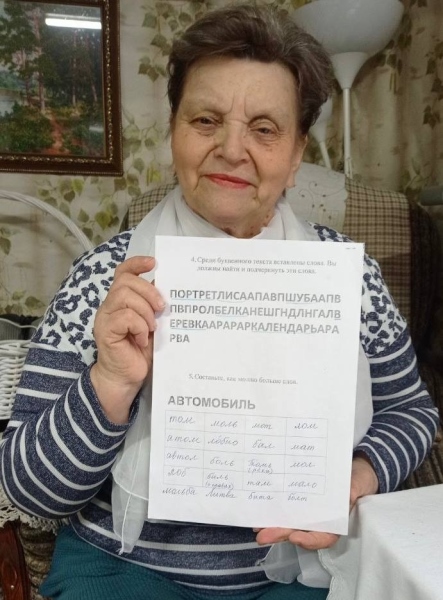 4. Среди буквенного текста вставлены слова. Вы
должны найти и подчеркнуть эти слова.
ПОРТРЕТЛИСААПАВПШУБААПВ
ПВПРОЛБЕЛКАНЕШГНДЛНГАЛВ
ЕРЕВКААРАРАРКАЛЕНДАРЬАРА
РВА
5. Составьте, как можно больше слов.
АВТОМОБИЛЬ
том моль мот лом
атом лобио бал мат
автол боль мол
лоб быль там мало
мольба Литва бита болт